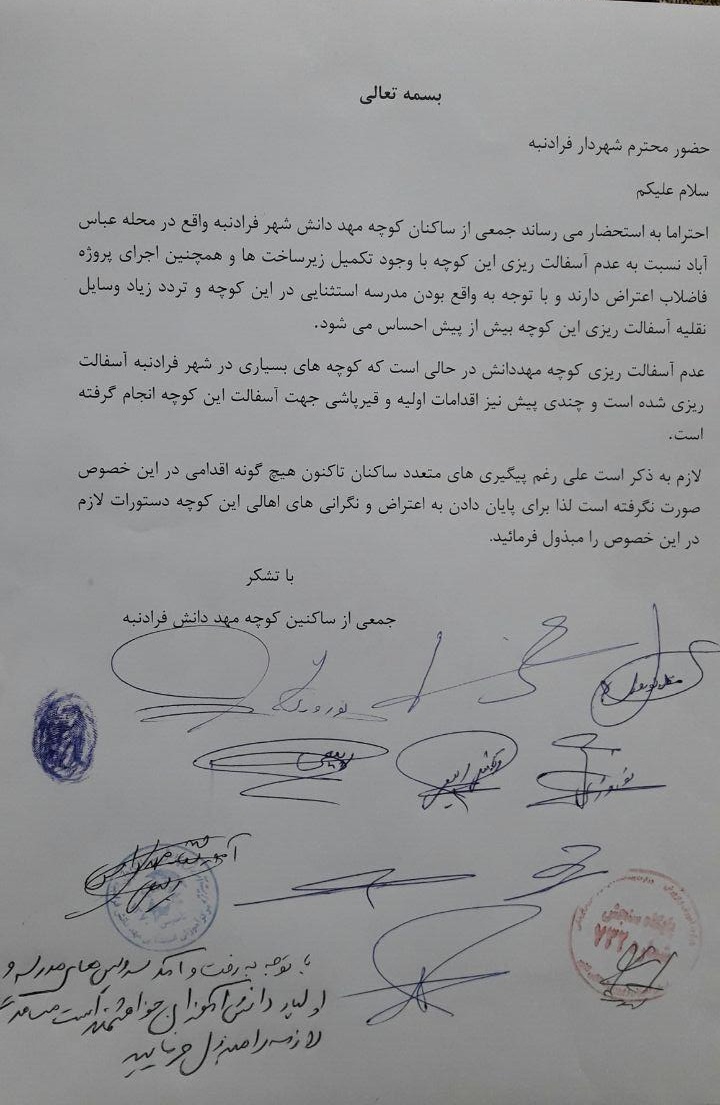 بسمه تعالی
حضور محترم شهردار فرادنبه
سلام علیکم
احتراما به استحضار می رساند جمعی از ساکنان کوچه مهد دانش شهر فرادنبه واقع در محله عباس
آباد نسبت به عدم آسفالت ریزی این کوچه با وجود تکمیل زیرساخت ها و همچنین اجرای پروژه
فاضلاب اعتراض دارند و با توجه به واقع بودن مدرسه استثنایی در این کوچه و تردد زیاد وسایل
نقلیه آسفالت ریزی این کوچه بیش از پیش احساس می شود.
عدم آسفالت ریزی کوچه مهددانش در حالی است که کوچه های بسیاری در شهر فرادنبه آسفالت
ریزی شده است و چندی پیش نیز اقدامات اولیه و قیرپاشی جهت آسفالت این کوچه انجام گرفته
است.
لازم به ذکر است علی رغم پیگیری های متعدد ساکنان تاکنون هیچ گونه اقدامی در این خصوص
صورت نگرفته است لذا برای پایان دادن به اعتراض و نگرانی های اهالی این کوچه دستورات لازم
در این خصوص را مبذول فرمائید.
با تشکر
جمعی از ساکنین کوچه مهد دانش فرادنبه
پایگاه سنجش
با توجه به رفت و آمد سرویس های مدرسه و
اولیاء دانش آموزان خواهشمند است مساعدت
لازم را مبذول فرمایید